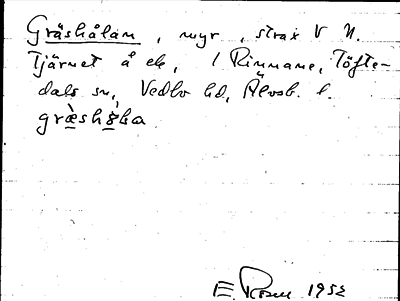 Gräshålan, myr, strax V N.
Tjärnet å ek, 1 Rinnane, Töfte-
dals sn, Vedbo hd, Älvsb. l.
græ̀shə̣̊l̥a
E. Rosell 1952